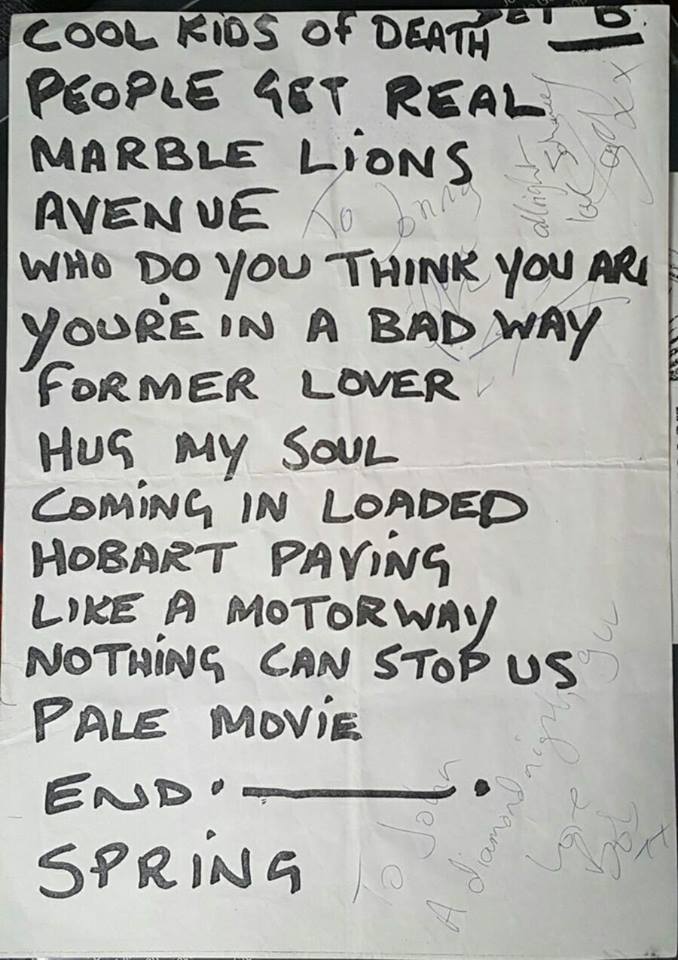 SET B.
COOL KIDS OF DEATH
PEOPLE GET REAL
MARBLE LIONS
AVENUE
WHO DO YOU THINK YOU ARE
YOURE IN A BAD WAY
FORMER LOVER
HUG MY SOUL
COMING IN LOADED
HOBART PAVING
LIKE A MOTORWAY
NOTHING CAN STOP US
PALE MOVIE
END
SPRING
To Jonny
allright
To John
A diamond night,
love
Bob
x